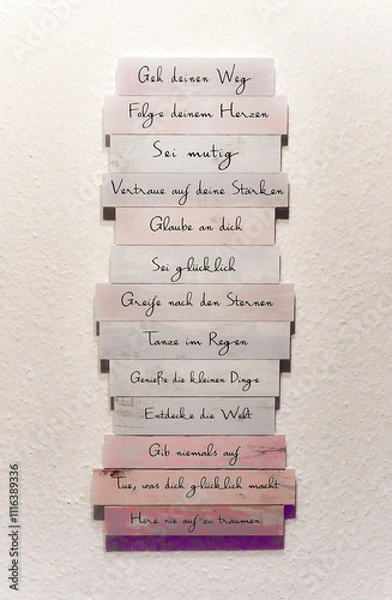 Geh deinen Weg
Folge deinem Herzen
Sei mutig
Vertraue auf deine Stärken
Glaube an dich
Sei glücklich
Greife nach den Sternen
Tanze im Regen
Genieße die kleinen Dinge
Entdecke die Welt
Gib niemals auf
Tue, was dich glücklich macht
Höre nie auf zu träumen
Adobe Stock | #1116389336